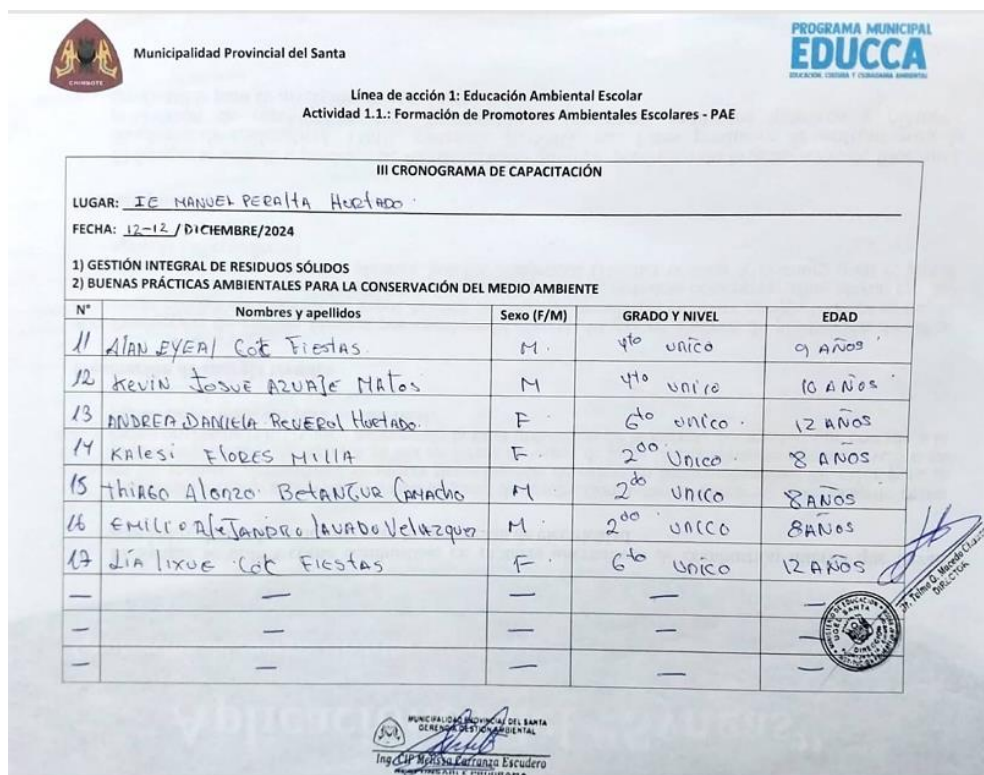 CHIMBOTE
Municipalidad Provincial del Santa
PROGRAMA MUNICIPAL
EDUCCA
EDUCACIÓN, CULTURA Y CIUDADANÍA AMBIENTAL
Línea de acción 1: Educación Ambiental Escolar
Actividad 1.1.: Formación de Promotores Ambientales Escolares - PAE
III CRONOGRAMA DE CAPACITACIÓN
LUGAR: IE MANUEL PERALTA HURTADO.
FECHA: 12-12 / DICIEMBRE/2024
1) GESTIÓN INTEGRAL DE RESIDUOS SÓLIDOS
2) BUENAS PRÁCTICAS AMBIENTALES PARA LA CONSERVACIÓN DEL MEDIO AMBIENTE
N° Nombres y apellidos Sexo (F/M) GRADO Y NIVEL EDAD
11 Fiestas. M. 4to unico 9 AÑOS
12 Kevin Josue AZUAJE MAtos M 4to unico 10 AÑOS
13 ANDREA DANIELA ReVERol HuRtADO. F 6to unico. 12 AÑOS
14 KAlesi FloRES MillA F. 2do Unico. 8 AÑOS
15 thiAGO Alonzo BetANCUR CAMACho M 2do unico 8 AÑOS
16 EMILIO AleJANDRO lAVADO VelAZquez M. 2do unico 8AÑOS
17 FIESTAS F 6to unico 12 AÑOS
— — — — —
— — — — —
— — — — —
DIRECTOR
UGEL SANTA
DIRECCIÓN
MUNICIPALIDAD PROVINCIAL DEL SANTA
GERENCIA GESTIÓN AMBIENTAL
Ing. CIP Melissa Carranza Escudero